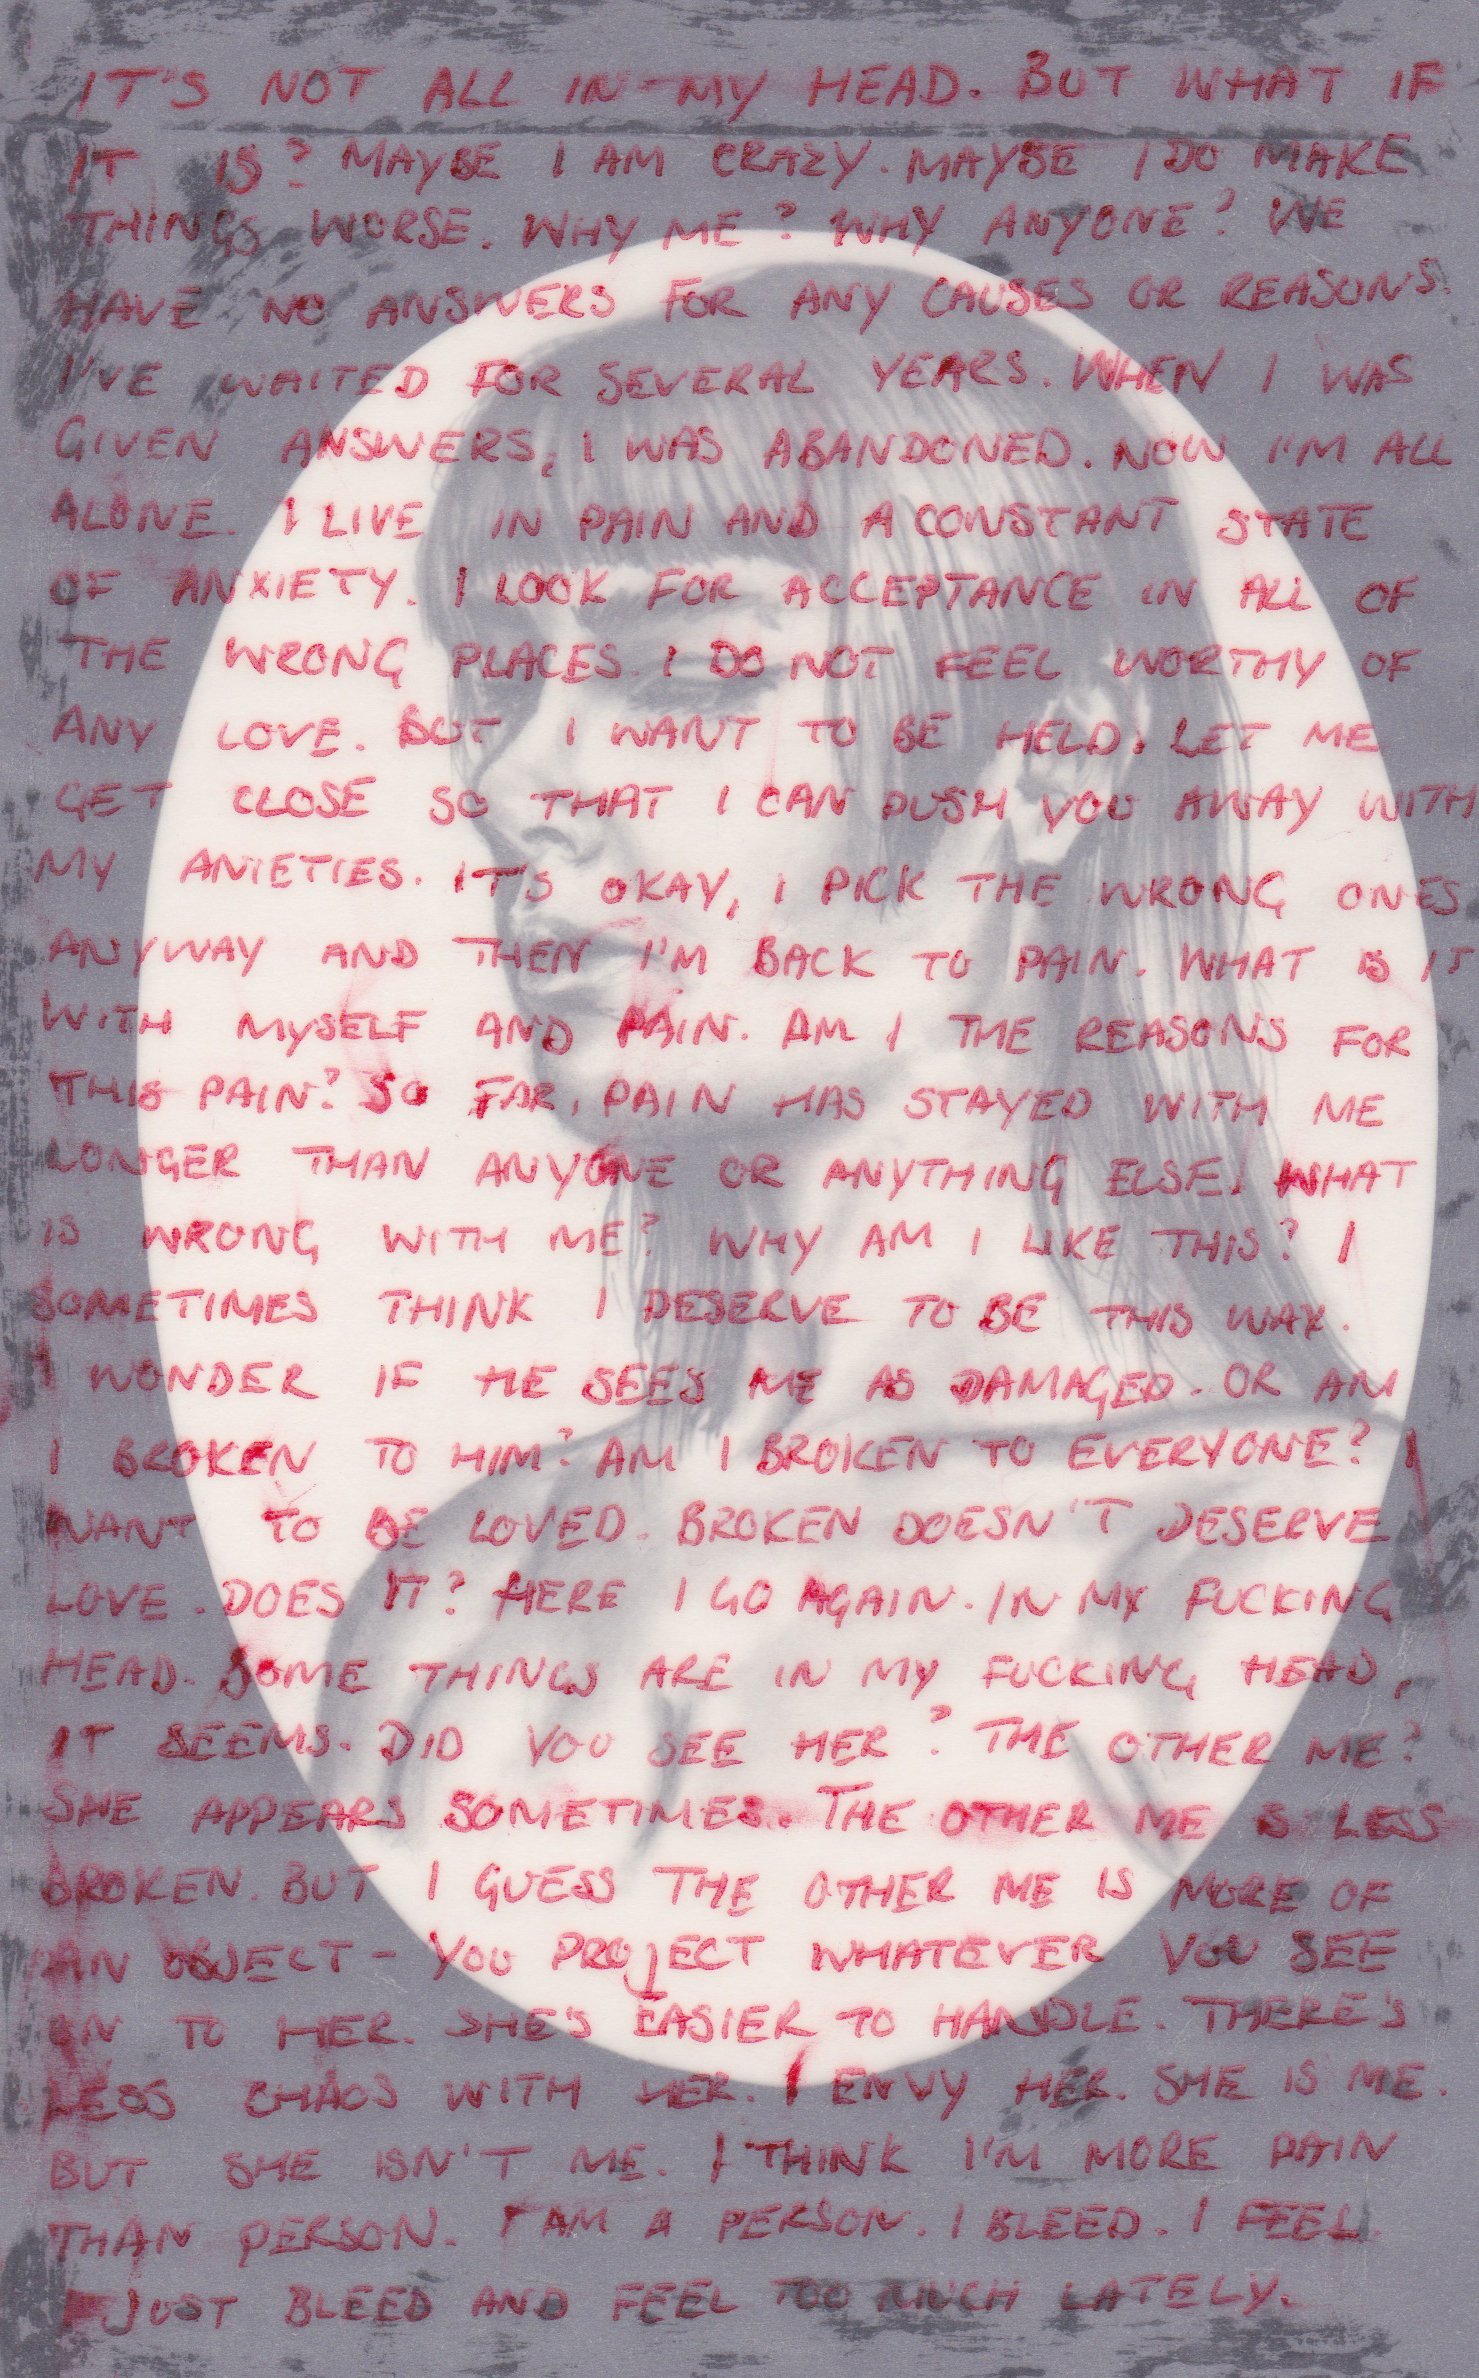 IT'S NOT ALL IN MY HEAD. BUT WHAT IF
IT IS? MAYBE I AM CRAZY. MAYBE I DO MAKE
THINGS WORSE. WHY ME? WHY ANYONE? WE
HAVE NO ANSWERS FOR ANY CAUSES OR REASONS.
I'VE WAITED FOR SEVERAL YEARS. WHEN I WAS
GIVEN ANSWERS, I WAS ABANDONED. NOW I'M ALL
ALONE. I LIVE IN PAIN AND A CONSTANT STATE
OF ANXIETY. I LOOK FOR ACCEPTANCE IN ALL OF
THE WRONG PLACES. I DO NOT FEEL WORTHY OF
ANY LOVE. BUT I WANT TO BE HELD. LET ME
GET CLOSE SO THAT I CAN PUSH YOU AWAY WITH
MY ANIETIES. IT'S OKAY, I PICK THE WRONG ONES
ANYWAY AND THEN I'M BACK TO PAIN. WHAT IS IT
WITH MYSELF AND PAIN. AM I THE REASONS FOR
THIS PAIN? SO FAR, PAIN HAS STAYED WITH ME
LONGER THAN ANYONE OR ANYTHING ELSE. WHAT
IS WRONG WITH ME? WHY AM I LIKE THIS? I
SOMETIMES THINK I DESERVE TO BE THIS WAY.
I WONDER IF HE SEES ME AS DAMAGED. OR AM
I BROKEN TO HIM? AM I BROKEN TO EVERYONE? I
WANT TO BE LOVED. BROKEN DOESN'T DESERVE
LOVE. DOES IT? HERE I GO AGAIN. IN MY FUCKING
HEAD. SOME THINGS ARE IN MY FUCKING HEAD,
IT SEEMS. DID YOU SEE HER? THE OTHER ME?
SHE APPEARS SOMETIMES. THE OTHER ME IS LESS
BROKEN. BUT I GUESS THE OTHER ME IS MORE OF
AN OBJECT - YOU PROJECT WHATEVER YOU SEE
ON TO HER. SHE'S EASIER TO HANDLE. THERE'S
LESS CHAOS WITH HER. I ENVY HER. SHE IS ME.
BUT SHE ISN'T ME. I THINK I'M MORE PAIN
THAN PERSON. I AM A PERSON. I BLEED. I FEEL.
I JUST BLEED AND FEEL TOO MUCH LATELY.